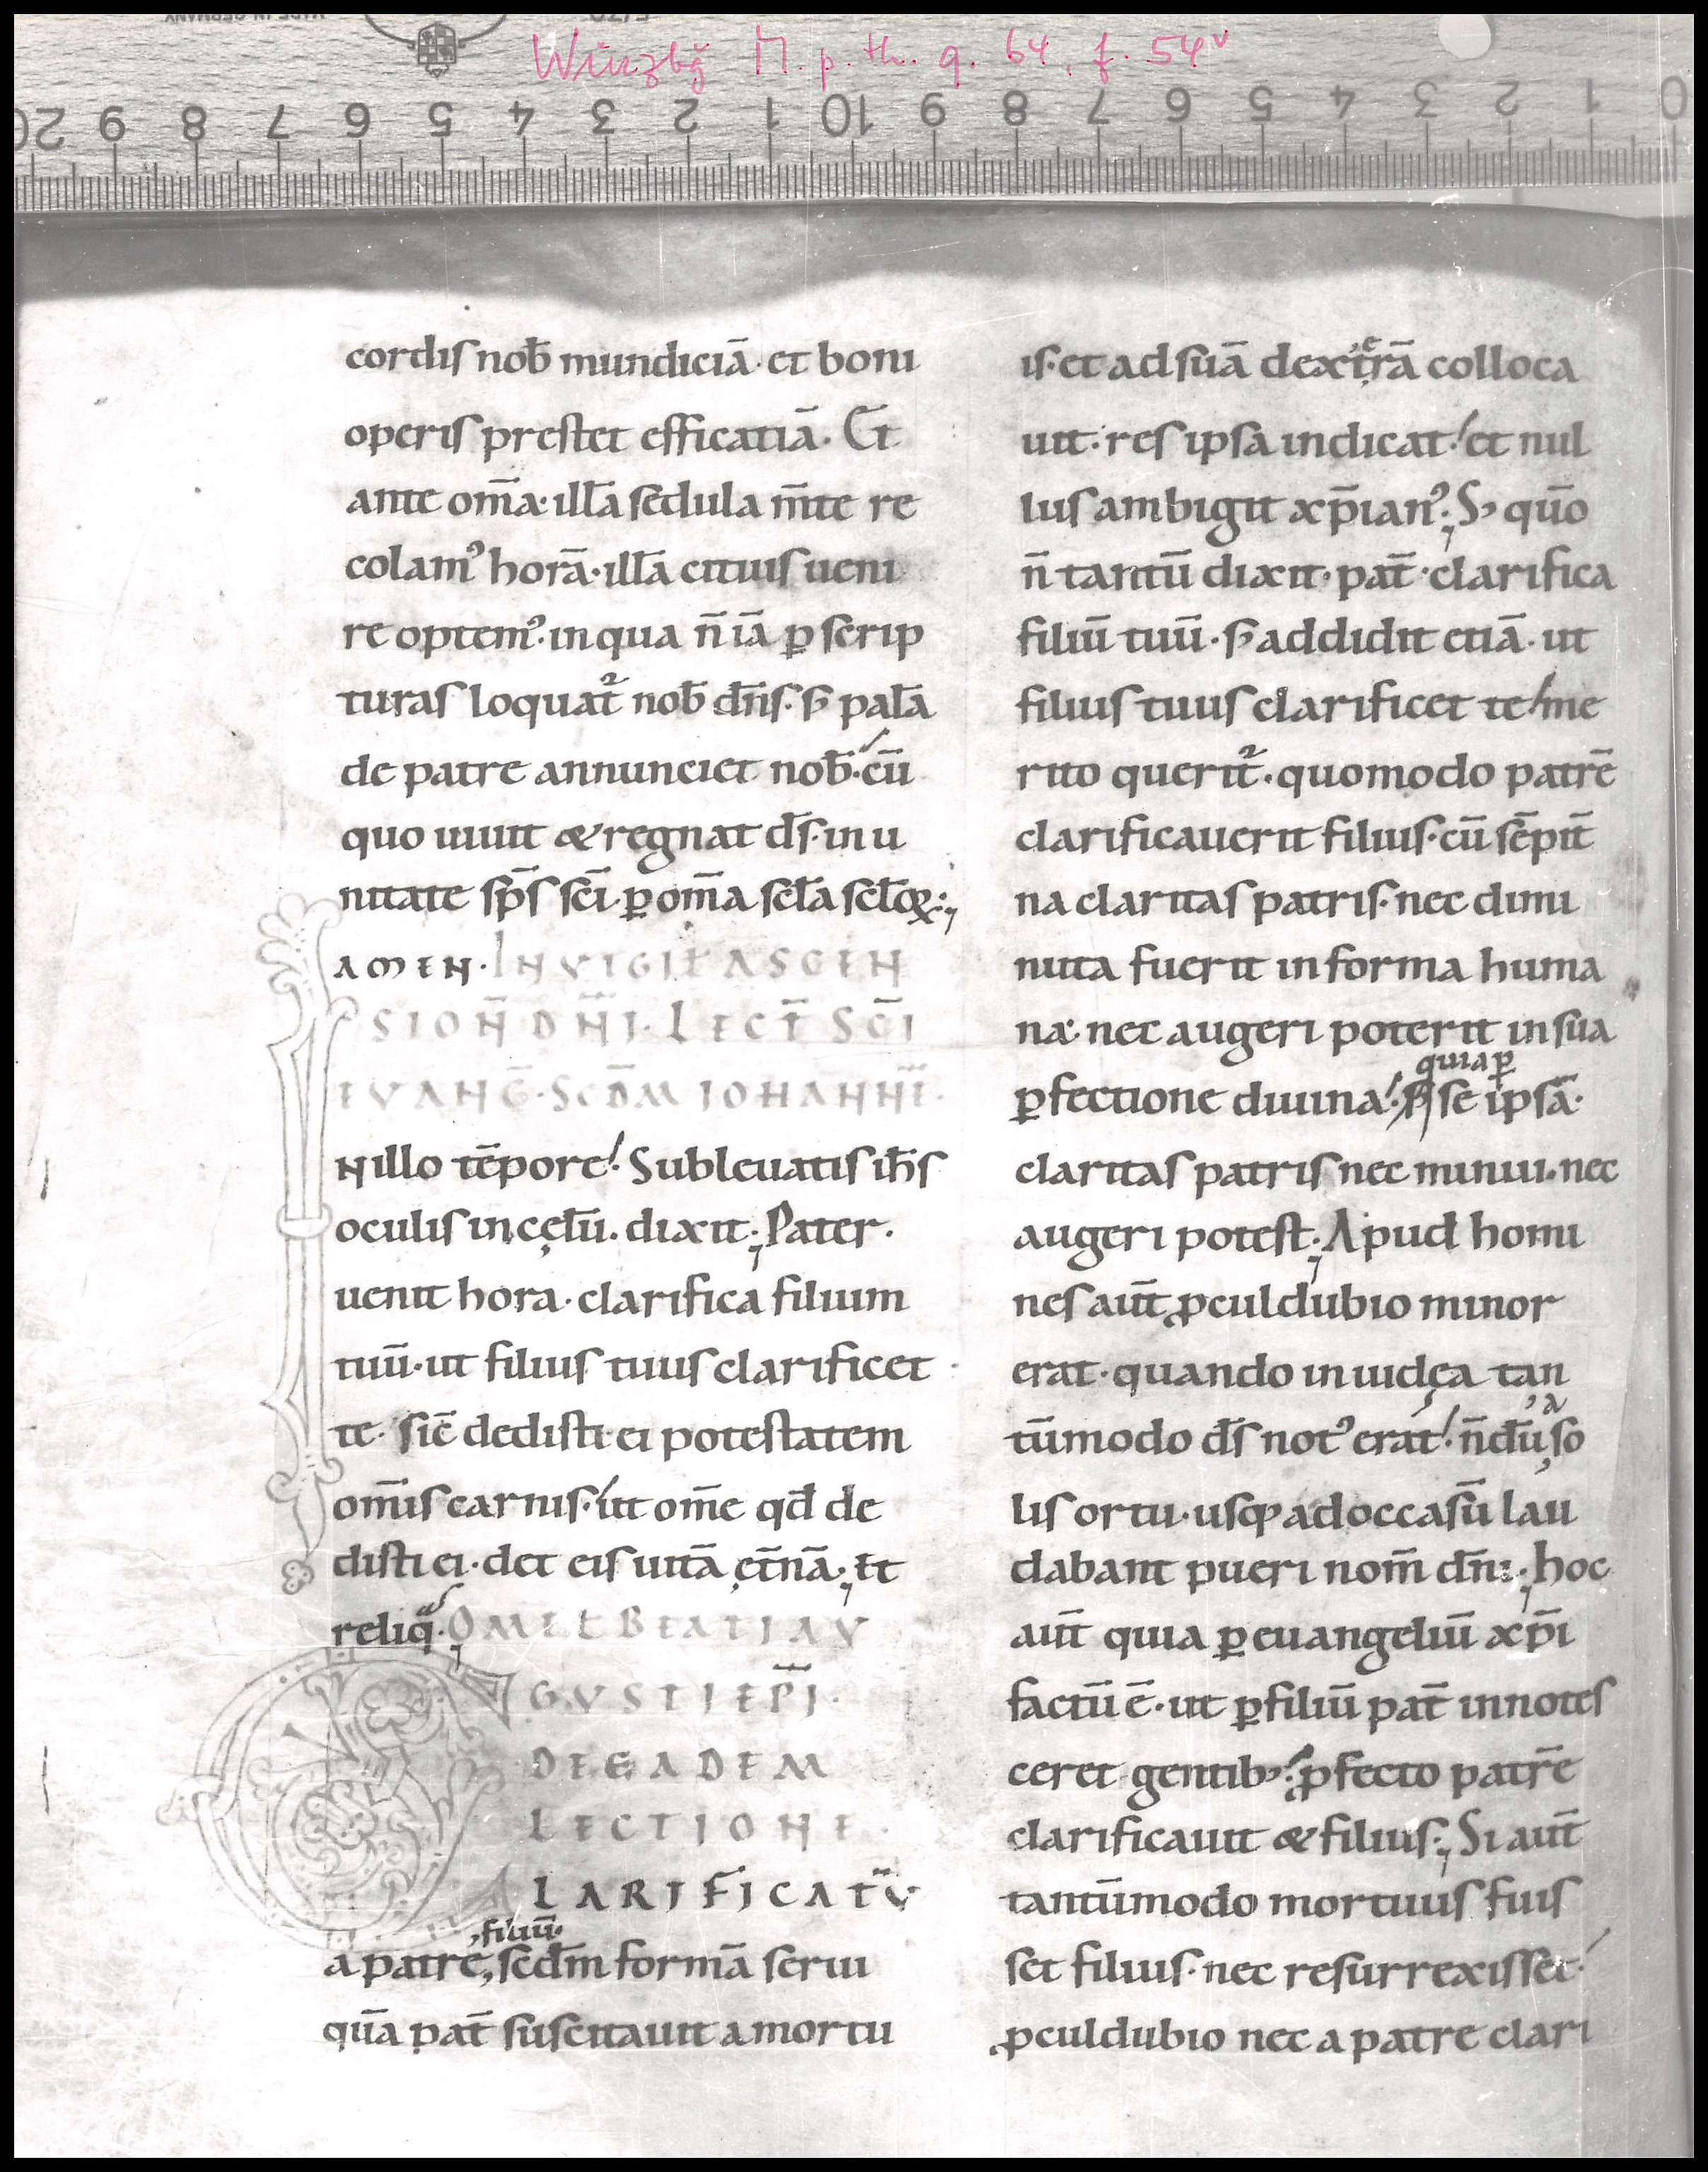 Würzbg M. p. th. q. 64, f. 54v
20 9 8 7 6 5 4 3 2 1 10 9 8 7 6 5 4 3 2 1 0
cordis nob̄ mundiciā· et boni
operis prestet efficatiā· Et
ante om̄a· illā sedula m̄te re
colam᾽ horā· illā cituis ueni
re optem᾽· in qua n̄ iā ꝑ scrip
turas loquat̄ᷣ nob̄ dn̄s· s; palā
de patre annunciet nob̄· cū
quo uiuit & regnat ds̄· in u
nitate sp̄s sc̄i· ꝑ om̄a scl̄a scl̄oꝝ:,
AMEN· IN VIGIL̄ ASCEN
SION̄ DN̄I· LECT̄ SC̄I
EVANḠ· SCD̄M IOHANN̄E·
N illo tēpore! Subleuatis ih̄s
oculis in cęlū· dixit:, Pater·
uenit hora· clarifica filium
tuū· ut filius tuus clarificet
te· sic̄ dedisti ei potestatem
om̄is carnis· ut om̄e qd̄ de
disti ei· det eis uitā ęt̄nā:, Et
reliq̄· OMEL BEATI AV
GVSTI EP̄I·
DE EADEM
LECTIONE·
CLARIFICATV̄
filiū·
a patre, sed̄m formā serui
quā pat̄ suscitauit a mortu
is· et ad suā dextᵉrā colloca
uit· res ipsa indicat! et nul
lus ambigit xp̄ian᾽:, S; quō
n̄ tantū dixit· pat̄ · clarifica
filiū tuū· s; addidit etiā· ut
filius tuus clarificet te! me
rito querit̄ᷣ· quomodo patrē
clarificauerit filius· cū sēpit̄
na claritas patris· nec dimi
nuta fuerit in forma huma
na· nec augeri poterit in sua
quia ꝑ
ꝑfectione diuina! se ipsā·
claritas patris nec minui· nec
augeri potest:, Apud homi
nes aūt ꝓculdubio minor
erat· quando in iudęa tan
tūmodo ds̄ not᾽ erat! n̄dū, ᵃ so
lis ortu· usqꝫ ad occasū lau
dabant pueri nom̄ dn̄i:, hoc
aūt quia ꝑ euangeliū xp̄i
factū ē· ut ꝑ filiū pat̄ innotes
ceret gentib;! ꝓfecto patrē
clarificauit & filius:, Si aūt
tantūmodo mortuus fuis
set filius· nec resurrexisset·
ꝓculdubio nec a patre clari